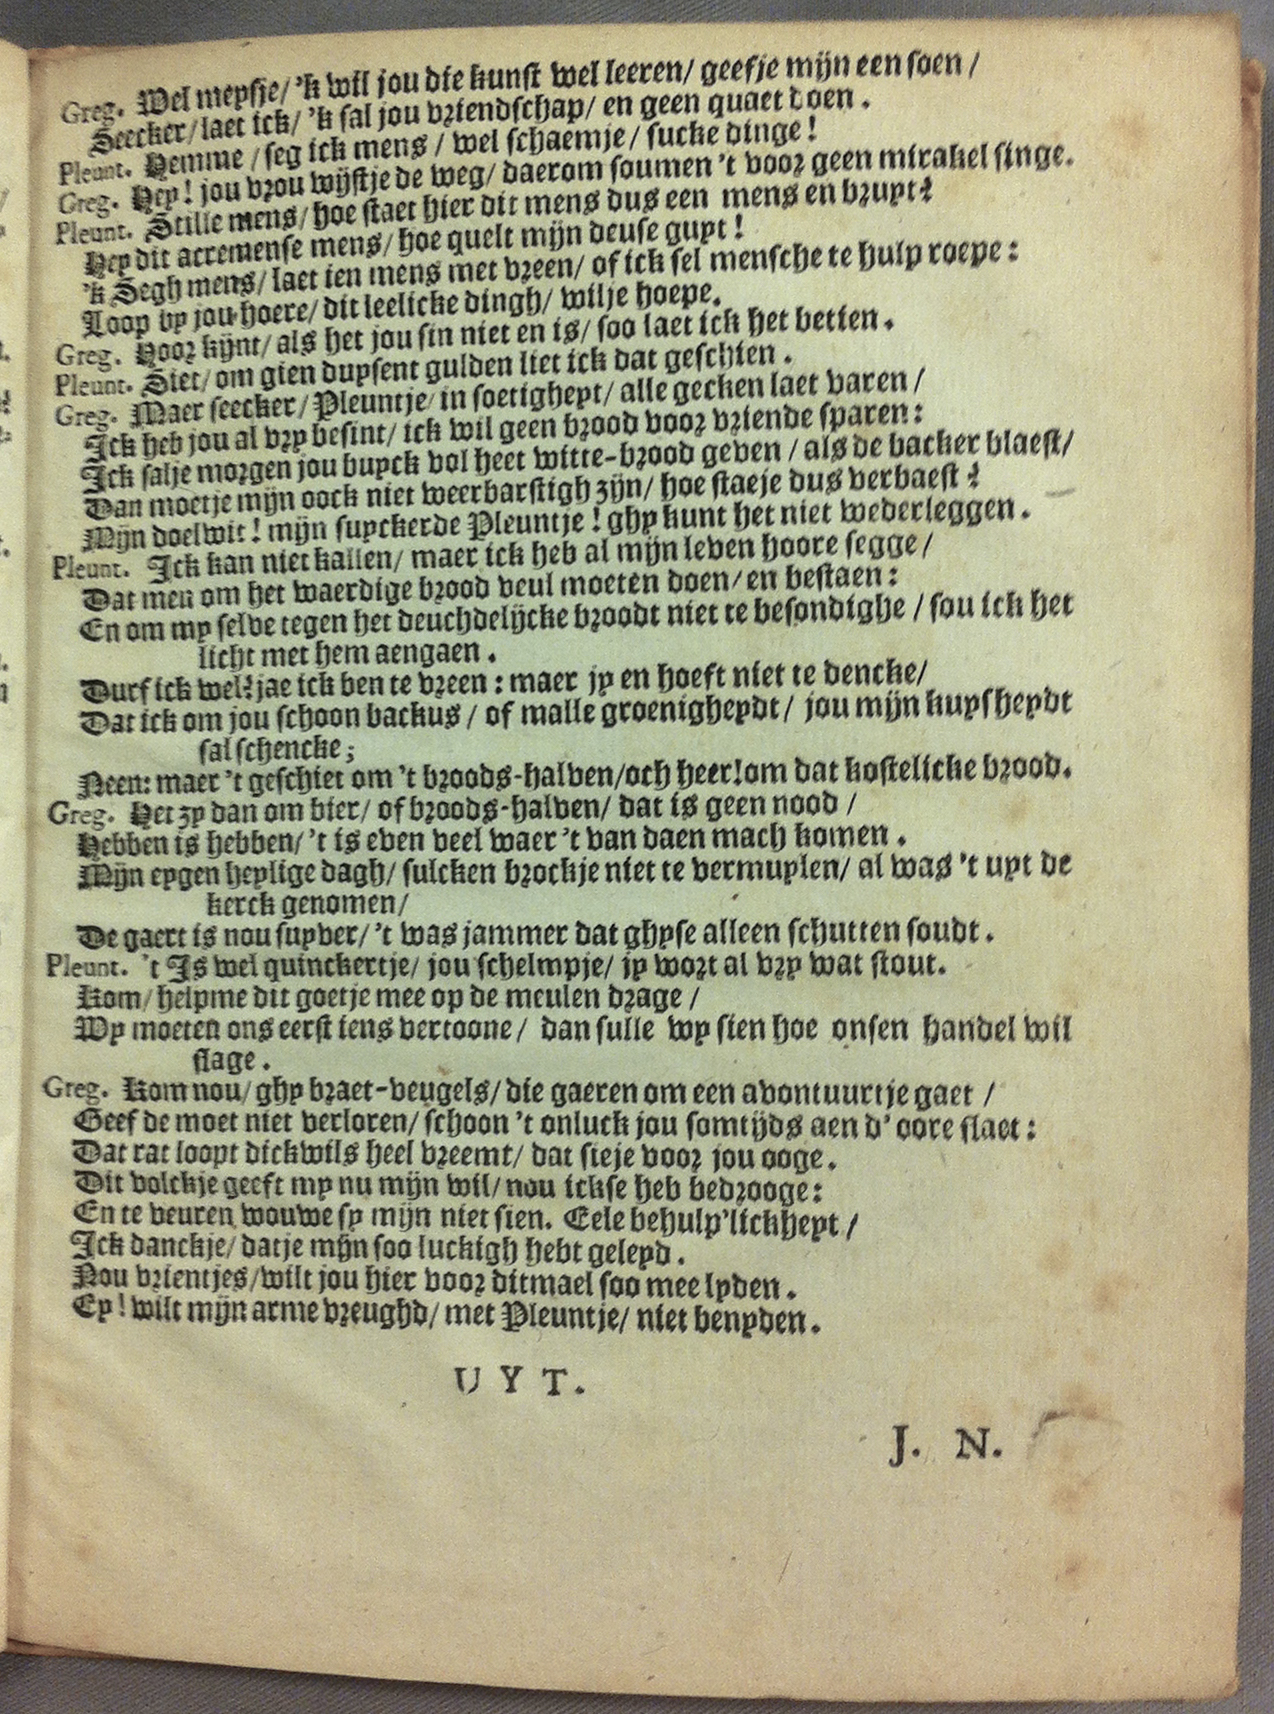 Greg. Wel meysje/ 'k wil jou die kunst wel leeren/ geefje mijn een soen/
Seecker/ laet ick/ 'k sal jou vriendschap/ en geen quaet doen.
Pleunt. Hemme/ seg ick mens/ wel schaemje/ sucke dinge!
Greg. Hey! jou vrou wijstje de weg/ daerom soumen 't voor geen mirakel singe.
Pleunt. Stille mens/ hoe staet hier dit mens dus een mens en bruyt?
Hey dit acremense mens/ hoe quelt mijn deuse guyt!
'k Segh mens/ laet ien mens met vreen/ of ick sel mensche te hulp roepe:
Loop by jou hoere/ dit leelicke dingh/ wilje hoepe.
Greg. Hoor kijnt/ als het jou sin niet en is/ soo laet ick het betien.
Pleunt. Siet/ om gien duysent gulden liet ick dat geschien.
Greg. Maer seecker/ Pleuntje/ in soetigheyt/ alle gecken laet varen/
Ick heb jou al vry besint/ ick wil geen brood voor vriende sparen:
Ick salje morgen jou buyck vol heet witte-brood geven/ als de backer blaest/
Dan moetje mijn oock niet weerbarstigh zijn/ hoe staeje dus verbaest?
Mijn doelwit! mijn suyckerde Pleuntje! ghy kunt het niet wederleggen.
Pleunt. Ick kan niet kallen/ maer ick heb al mijn leven hoore segge/
Dat men om het waerdige brood veul moeten doen/ en bestaen:
En om my selve tegen het deuchdelijcke broodt niet te besondighe/ sou ick het
licht met hem aengaen.
Durf ick wel? jae ick ben te vreen: maer jy en hoeft niet te dencke/
Dat ick om jou schoon backus/ of malle groenigheydt/ jou mijn kuysheydt
sal schencke;
Neen: maer 't geschiet om 't broods-halven/ och heer! om dat kostelicke brood.
Greg. Het zy dan om bier/ of broods-halven/ dat is geen nood/
Hebben is hebben/ 't is even veel waer 't van daen mach komen.
Mijn eygen heylige dagh/ sulcken brockje niet te vermuylen/ al was 't uyt de
kerck genomen/
De gaert is nou suyver/ 't was jammer dat ghyse alleen schutten soudt.
Pleunt. 't Is wel quinckertje/ jou schelmpje/ jy wort al vry wat stout.
Kom/ helpme dit goetje mee op de meulen drage/
Wy moeten ons eerst iens vertoone/ dan sulle wy sien hoe onsen handel wil
slage.
Greg. Kom nou/ ghy braet-veugels/ die gaeren om een avontuurtje gaet/
Geef de moet niet verloren/ schoon 't onluck jou somtijds aen d' oore slaet:
Dat rat loopt dickwils heel vreemt/ dat sieje voor jou ooge.
Dit volckje geeft my nu mijn wil/ nou ickse heb bedrooge:
En te veuren wouwe sy mijn niet sien. Eele behulp'lickheyt/
Ick danckje/ datje mijn soo luckigh hebt geleyd.
Nou vrientjes/ wilt jou hier voor ditmael soo mee lyden.
Ey! wilt mijn arme vreughd/ met Pleuntje/ niet benyden.
UYT.
J. N.